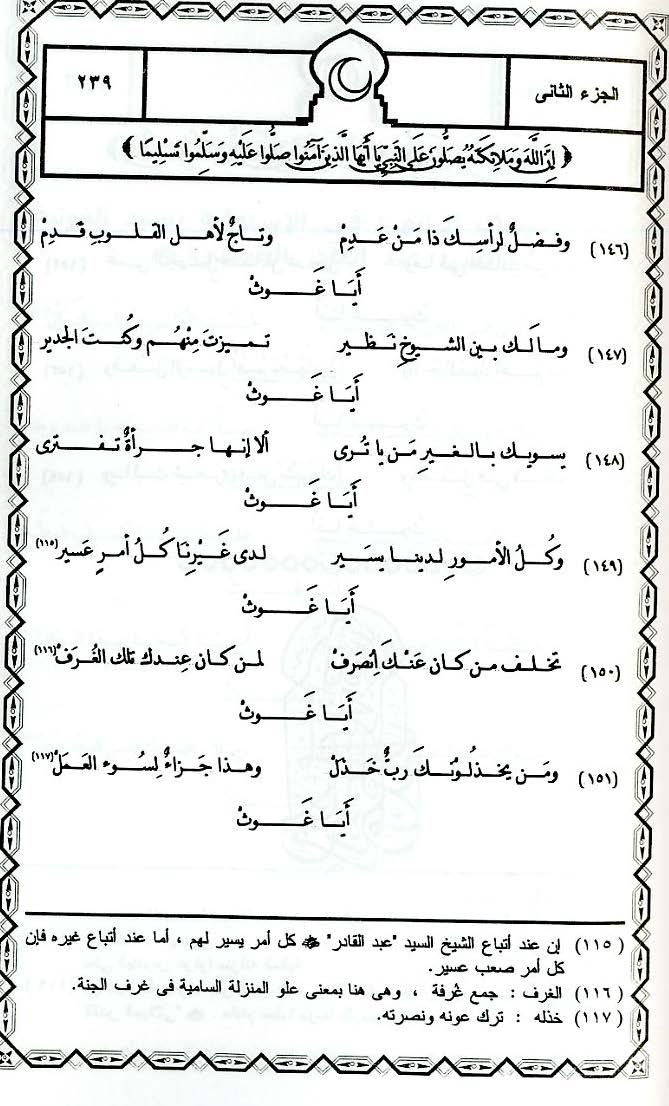 الجزء الثانى
٢٣٩
﴿ إِنَّ اللَّهَ وَمَلَائِكَتَهُ يُصَلُّونَ عَلَى النَّبِيِّ يَا أَيُّهَا الَّذِينَ آمَنُوا صَلُّوا عَلَيْهِ وَسَلِّمُوا تَسْلِيمًا ﴾
(١٤٦) وفضلٌ لرأسِكَ ذا مَنْ عَدِمْ وتاجٌ لأهل القلوبِ قَدِمْ
أَيَا غَوثْ
(١٤٧) ومالَك بين الشيوخِ نَظير تميزتَ مِنْهُم وكُنتَ الجدير
أَيَا غَوثْ
(١٤٨) يسويك بالغيرِ مَن يا تُرى ألا إنها جرأةٌ تفترى
أَيَا غَوثْ
(١٤٩) وكُلُ الأمورِ لدينا يسَير لدى غَيْرِنَا كُلُ أمرٍ عَسير(١١٥)
أَيَا غَوثْ
(١٥٠) تخلف من كان عَنْكَ انْصَرَفْ لمن كان عِندك تلك الغُرَفْ(١١٦)
أَيَا غَوثْ
(١٥١) ومَن يخذلُونَكَ ربٌ خَذَلْ وهذا جَزاءٌ لِسُوء العَمَلْ(١١٧)
أَيَا غَوثْ
(١١٥) إن عند أتباع الشيخ السيد "عبد القادر" كل أمر يسير لهم ، أما عند أتباع غيره فإن
كل أمر صعب عسير.
(١١٦) الغرف : جمع غُرفة ، وهى هنا بمعنى علو المنزلة السامية فى غرف الجنة.
(١١٧) خذله : ترك عونه ونصرته.